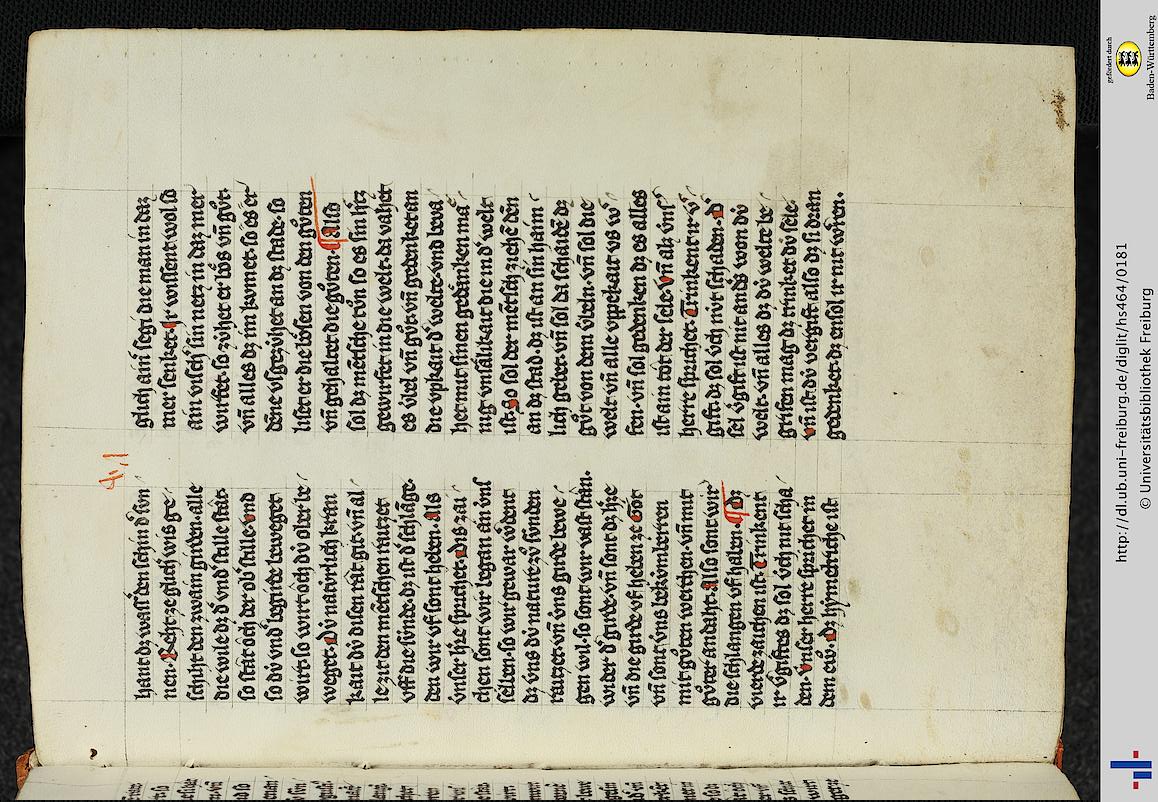 4,1
hant dz wasser den schin d' sun
nen. Recht ze glich wis ge
schiht den zwain giden. alle
die wile d' vnd' stille stat.
so stat och der ob stille. vnd
so dv vnd' beginet beweget
wirt. so wirt och dv ober be
weget. Dv naturlich kran
kait dv disen rat git. vn al
lezit den menschen raitzet
vff die sunde. dz ist d' schlage.
den wir vf sont heben. Als
vnser h're sprichet. Dis zai
chen sont wir began an vns
selben. so wir gewar wdent
dz vns dv nature zv sunden
raitzet. vn vns girde bewe
gen wil. so sont wir vast stan.
wider d' girde. vn sont dz h'ze
vn die girde vf heben ze Got
vn sont vns bekvmberren
mit guten werchen. vn mit
guter andaht. Also sont wir
die schlangen vf haben. Dz
vierde zaichen ist. Trinkent
ir v'giftes dz sol vch nit scha
den. vnser herre sprichet in
dem ew. Dz hymelriche ist
glich aim segi die man in daz
mer senket. Ir wissent wol so
ain visch' sin netz in daz mer
wirfet. so zvhet er bos vn gut.
vn alles dz im kvmet. so es er
denne vsgezvhet an dz stade. so
liset er die bosen von den guten
vn gehaltet die guten. Also
sol dz mensche tvn so es sin h'tz
gewirfet in die welt. da vahet
es vbel vn gut. vn gedenket an
die vpkait d' welte. vnd beva
het mit sinen gedanken ma
nig vnsalikait die in d' welt
ist. So sol der mensch ziehe den
an dz stad. dz ist an sin haim
lich gebet. vn sol da schaide dz
gut von dem vbeln. vn sol die
welt vn alle vppekait vs w'
fen. vn sol gedenken dz es alles
ist ain tot der sele. vn als vns'
herre sprichet. Trinkent ir v'
gift. dz sol vch nvt schaden. D
sel v'gift ist nit anders won dv
welt. vn alles dz dv welte be
grifen mag dz trinket dv sele.
vn ist dv vergift also dz si dran
gedenket. dz ensol ir nit wiren.
gefördert durch
Baden-Württemberg
http://dl.ub.uni-freiburg.de/diglit/hs464/0181
© Universitätsbibliothek Freiburg